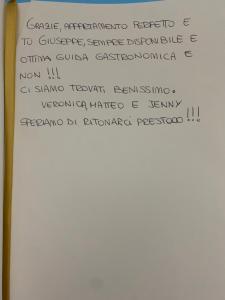 GRAZIE, APPARTAMENTO PERFETTO E
TU GIUSEPPE, SEMPRE DISPONIBILE E
OTTIMA GUIDA GASTRONOMICA E
NON !!!
CI SIAMO TROVATI BENISSIMO.
VERONICA, MATTEO E JENNY
SPERIAMO DI RITONARCI PRESTOOO !!!